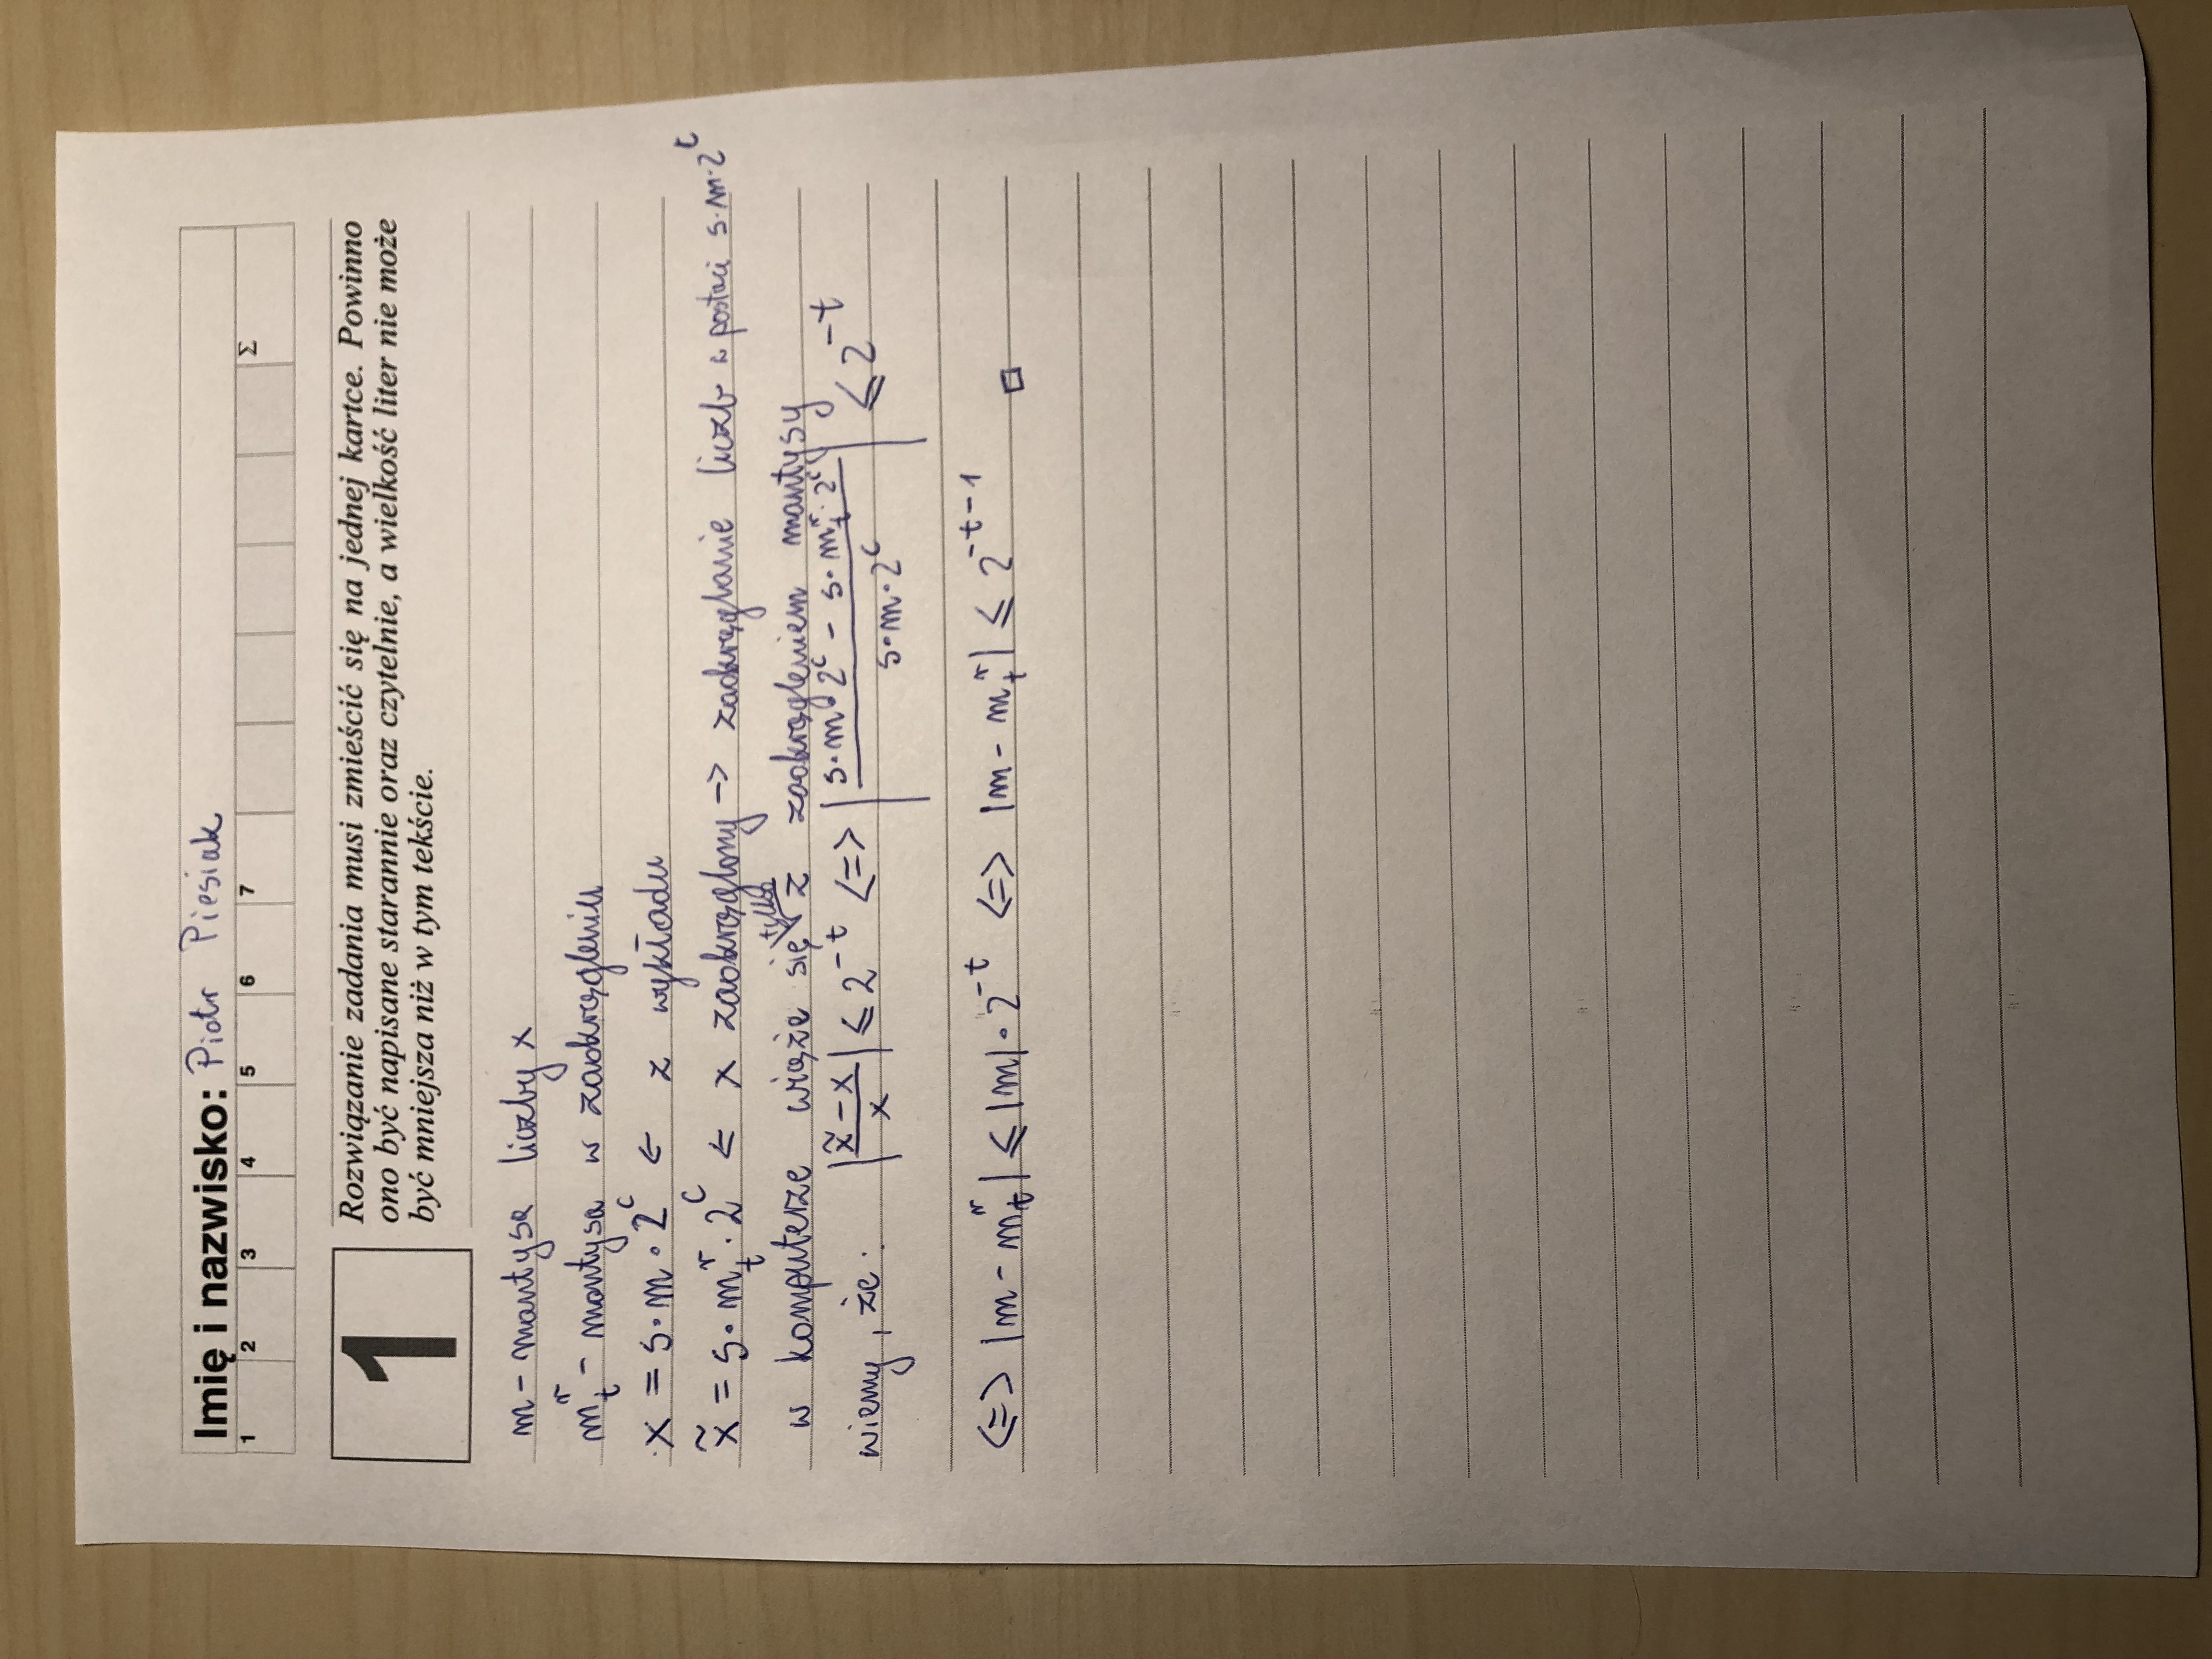 Imię i nazwisko: Piotr Piesiak
1 2 3 4 5 6 7 Σ
1
Rozwiązanie zadania musi zmieścić się na jednej kartce. Powinno
ono być napisane starannie oraz czytelnie, a wielkość liter nie może
być mniejsza niż w tym tekście.
m - mantysa liczby x
m_t^r - mantysa w zaokrągleniu
x = s·m·2^c ← z wykładu
x̃ = s·m_t^r·2^c ← x zaokrąglony -> zaokrąglanie liczb w postaci s·m·2^c
w komputerze wiąże się tylko z zaokrągleniem mantysy
wiemy, że: |(x̃-x)/x| ≤ 2^{-t} <=> |(s·m·2^c - s·m_t^r·2^c)/(s·m·2^c)| ≤ 2^{-t}
<=> |m - m_t^r| ≤ |m|·2^{-t} <=> |m - m_t^r| ≤ 2^{-t-1} □